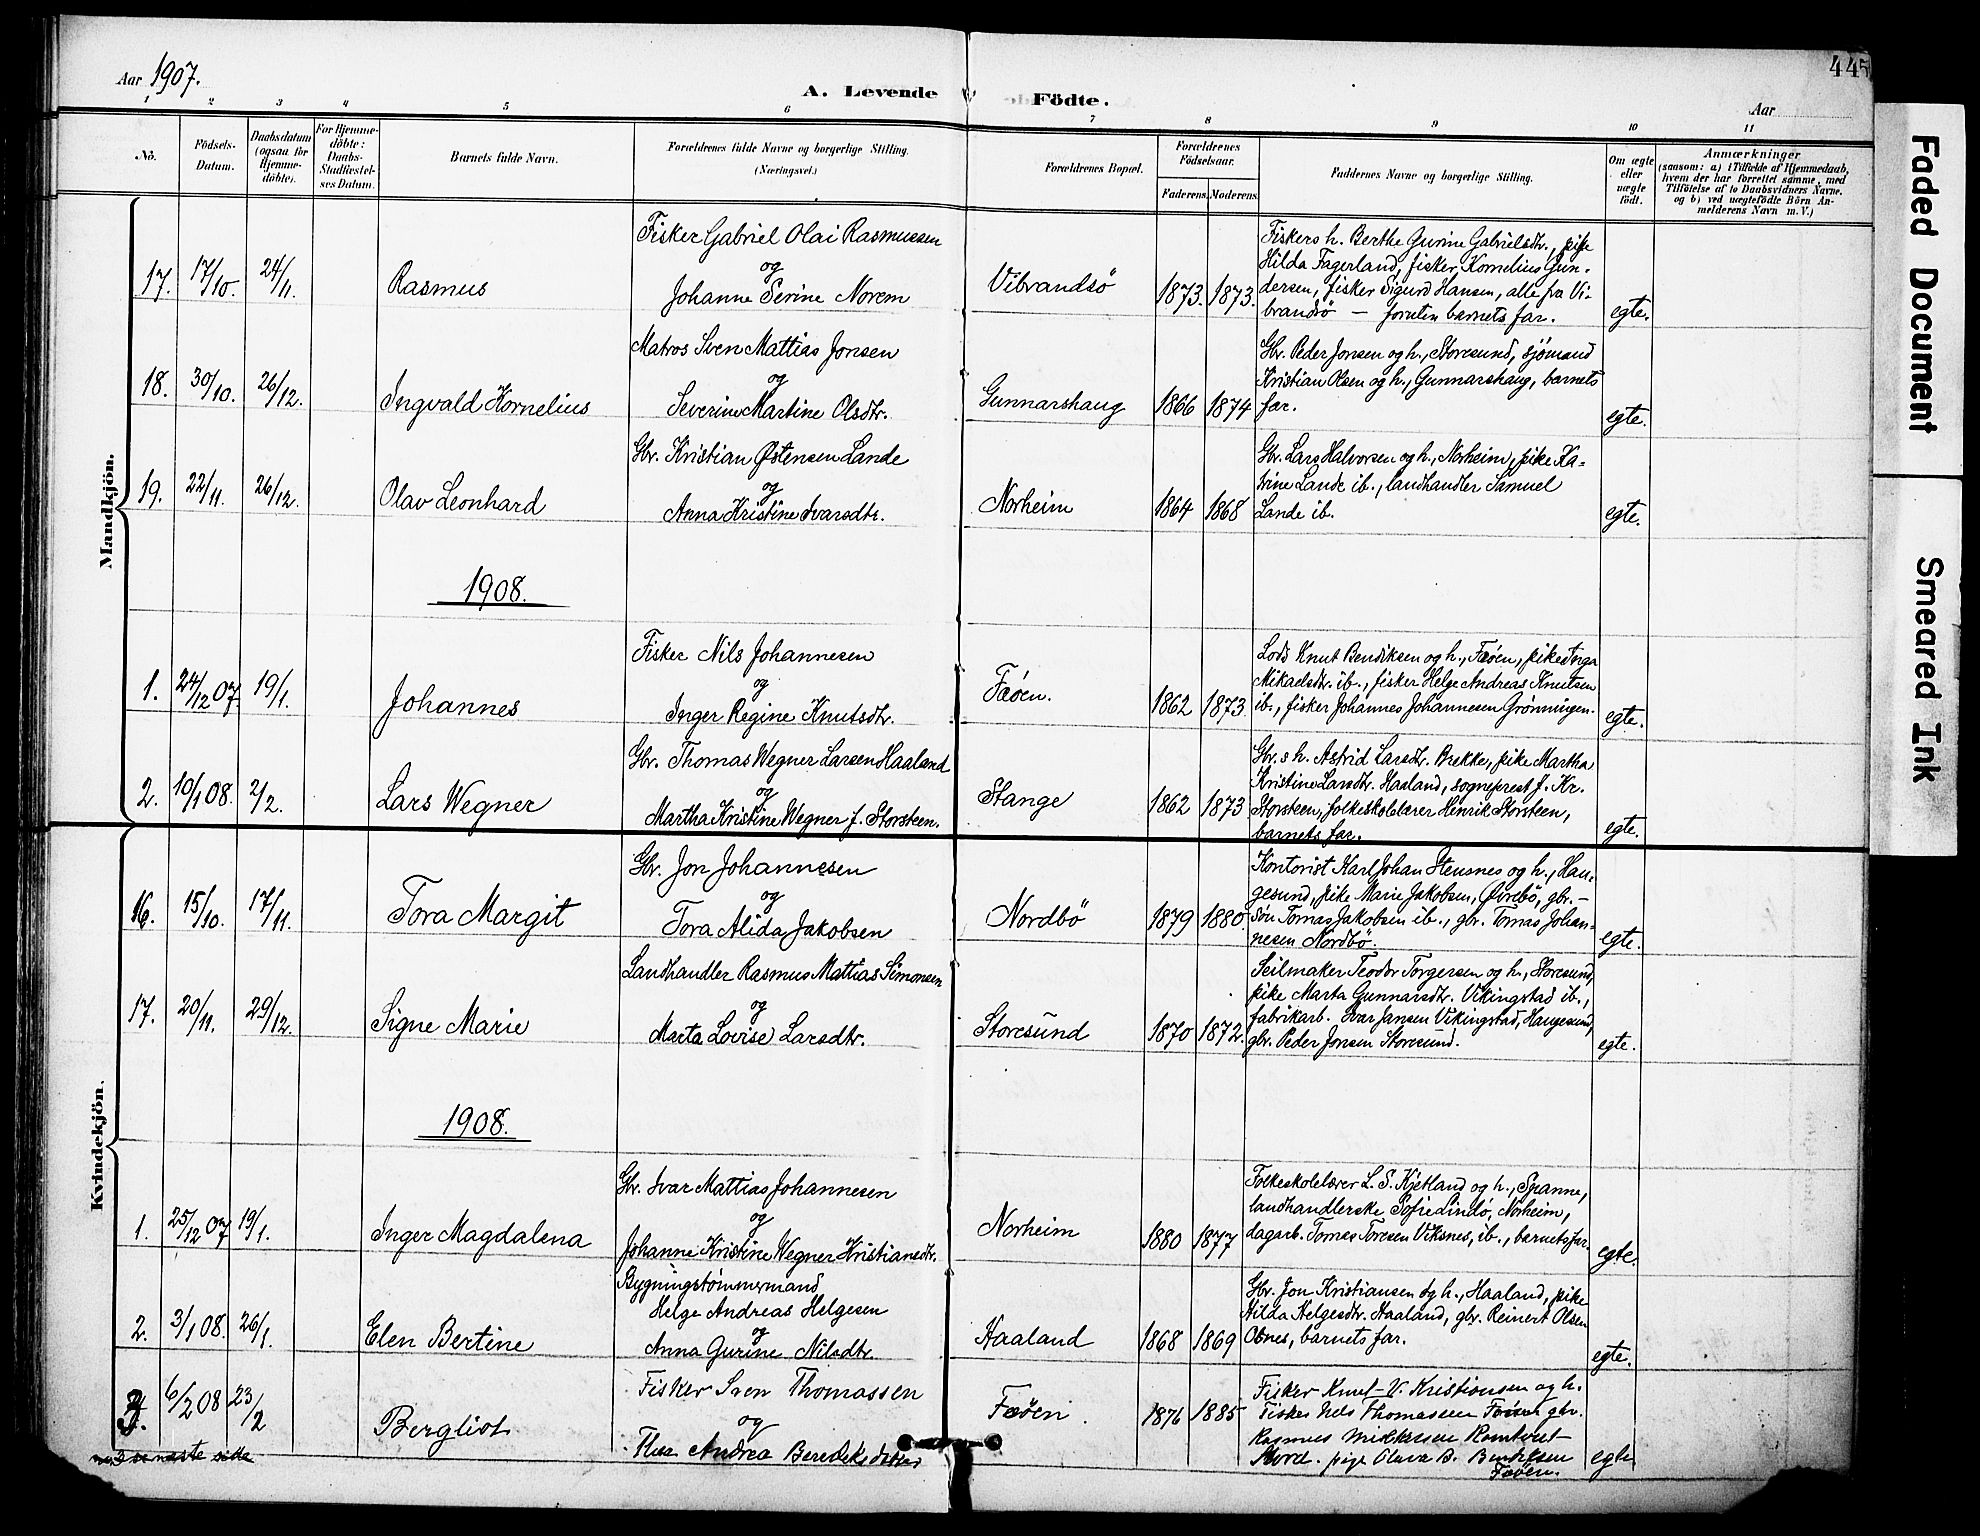 Aar 1907.
A. Levende Födte.
Aar
445
1 2 3 4 5 6 7 8 9 10 11
No.
Födsels-
Datum.
Daabsdatum
(ogsaa for
Hjemme-
döbte).
For Hjemme-
döbte:
Daabs-
Stadfæstel-
ses Datum.
Barnets fulde Navn.
Forældrenes fulde Navne og borgerlige Stilling.
(Næringsvei.)
Forældrenes Bopæl.
Forældrenes
Födselsaar.
Faderens. Moderens.
Faddernes Navne og borgerlige Stilling.
Om ægte
eller
uægte
födt.
Anmærkninger
(saasom: a) i Tilfælde af Hjemmedaab,
hvem der har forrettet samme, med
Tilföielse af to Daabsvidners Navne.
og b) ved uægtefödte Börn An-
melderens Navn m. V.)
Mandkjön.
17. 17/10. 24/11. Rasmus
Fisker Gabriel Olai Rasmussen
og
Johanne Serine Norem
Vibrandsö 1873. 1873.
Fiskers h. Berthe Gurine Gabrielsdtr., pike
Hilda Fagerland, fisker Kornelius Gun-
dersen, fisker Sigurd Hansen, alle fra Vi-
brandsö — foruten barnets far.
egte.
18. 30/10. 26/12. Ingvald Kornelius
Matros Sven Mattias Jonsen
og
Severine Martine Olsdtr.
Gunnarshaug 1866 1874
Gbr. Peder Jonsen og h., Storesund, sjömand
Kristian Olsen og h., Gunnarshaug, barnets
far.
egte.
19. 22/11. 26/12. Olav Leonhard
Gbr. Kristian Østensen Lande
og
Anna Kristine Ivarsdtr.
Norheim 1864 1868
Gbr. Lars Halvorsen og h., Norheim, pike Ka-
trine Lande ib., landhandler Samuel
Lande ib.
egte.
1908.
1. 24/12 07. 19/1. Johannes
Fisker Nils Johannesen
og
Inger Regine Knutsdtr.
Fæöen. 1862 1873
Lods Knut Bendiksen og h., Fæöen, pike Inga
Mikaelsdtr. ib., fisker Helge Andreas Knutsen
ib., fisker Johannes Johannesen Grönningen.
egte.
2. 10/1 08. 2/2. Lars Wegner
Gbr. Thomas Wegner Larsen Haaland
og
Martha Kristine Wegner f. Storsteen.
Stange 1862 1873
Gbr.s h. Astrid Larsdtr. Brekke, pike Martha
Kristine Larsdtr. Haaland, sogneprest J. Kr.
Storsteen, folkeskolelærer Henrik Storsteen,
barnets far.
egte.
Kvindekjön.
16. 15/10. 17/11. Tora Margit
Gbr. Jon Johannesen
og
Tora Alida Jakobsen
Nordbö 1879 1880.
Kontorist Karl Johan Stensnes og h., Hau-
gesund, pike Marie Jakobsen, Øvrebö, gbr.-
sön Tomas Jakobsen ib., gbr. Tomas Johan-
nesen Nordbö.
egte.
17. 20/11. 29/12. Signe Marie
Landhandler Rasmus Mattias Simonsen
og
Marta Lovise Larsdtr.
Storesund 1870 1872.
Seilmaker Teodor Torgersen og h., Storesund,
pike Marta Gunnarsdtr. Vikingstad ib.,
fabrikarb. Ivar Jansen Vikingstad, Haugesund,
gbr. Peder Jonsen Storesund.
egte.
1908.
1. 25/12 07 19/1. Inger Magdalena
Gbr. Ivar Mattias Johannesen
og
Johanne Kristine Wegner Kristiansdtr.
Norheim 1880 1877
Folkeskolelærer L. S. Kjetland og h., Spanne,
landhandlerske Sofie Lindö, Norheim,
dagarb. Tomas Toresen Viksnes, ib., barnets far.
egte.
2. 3/1 08. 26/1. Elen Bertine
Bygningstömmermand
Helge Andreas Helgesen
og
Anna Gurine Nilsdtr.
Haaland 1868 1869
Gbr. Jon Kristiansen og h., Haaland, pike
Hilda Helgesdtr. Haaland, gbr. Reinert Olsen
Osnes, barnets far.
egte.
3. 6/2 08 23/2 Bergliot
Fisker Sven Thomassen
og
Thea Andrea Bendiksdatter
Fæöen. 1876 1885
Fisker Knut V. Kristiansen og h.
Fisker Nels Thomassen Fæöen gbr.
Rasmus Mikkelsen
pige Olava B. Bendiksen
Fæöen.
egte
no 3 se næste side
Faded Document
Smeared Ink